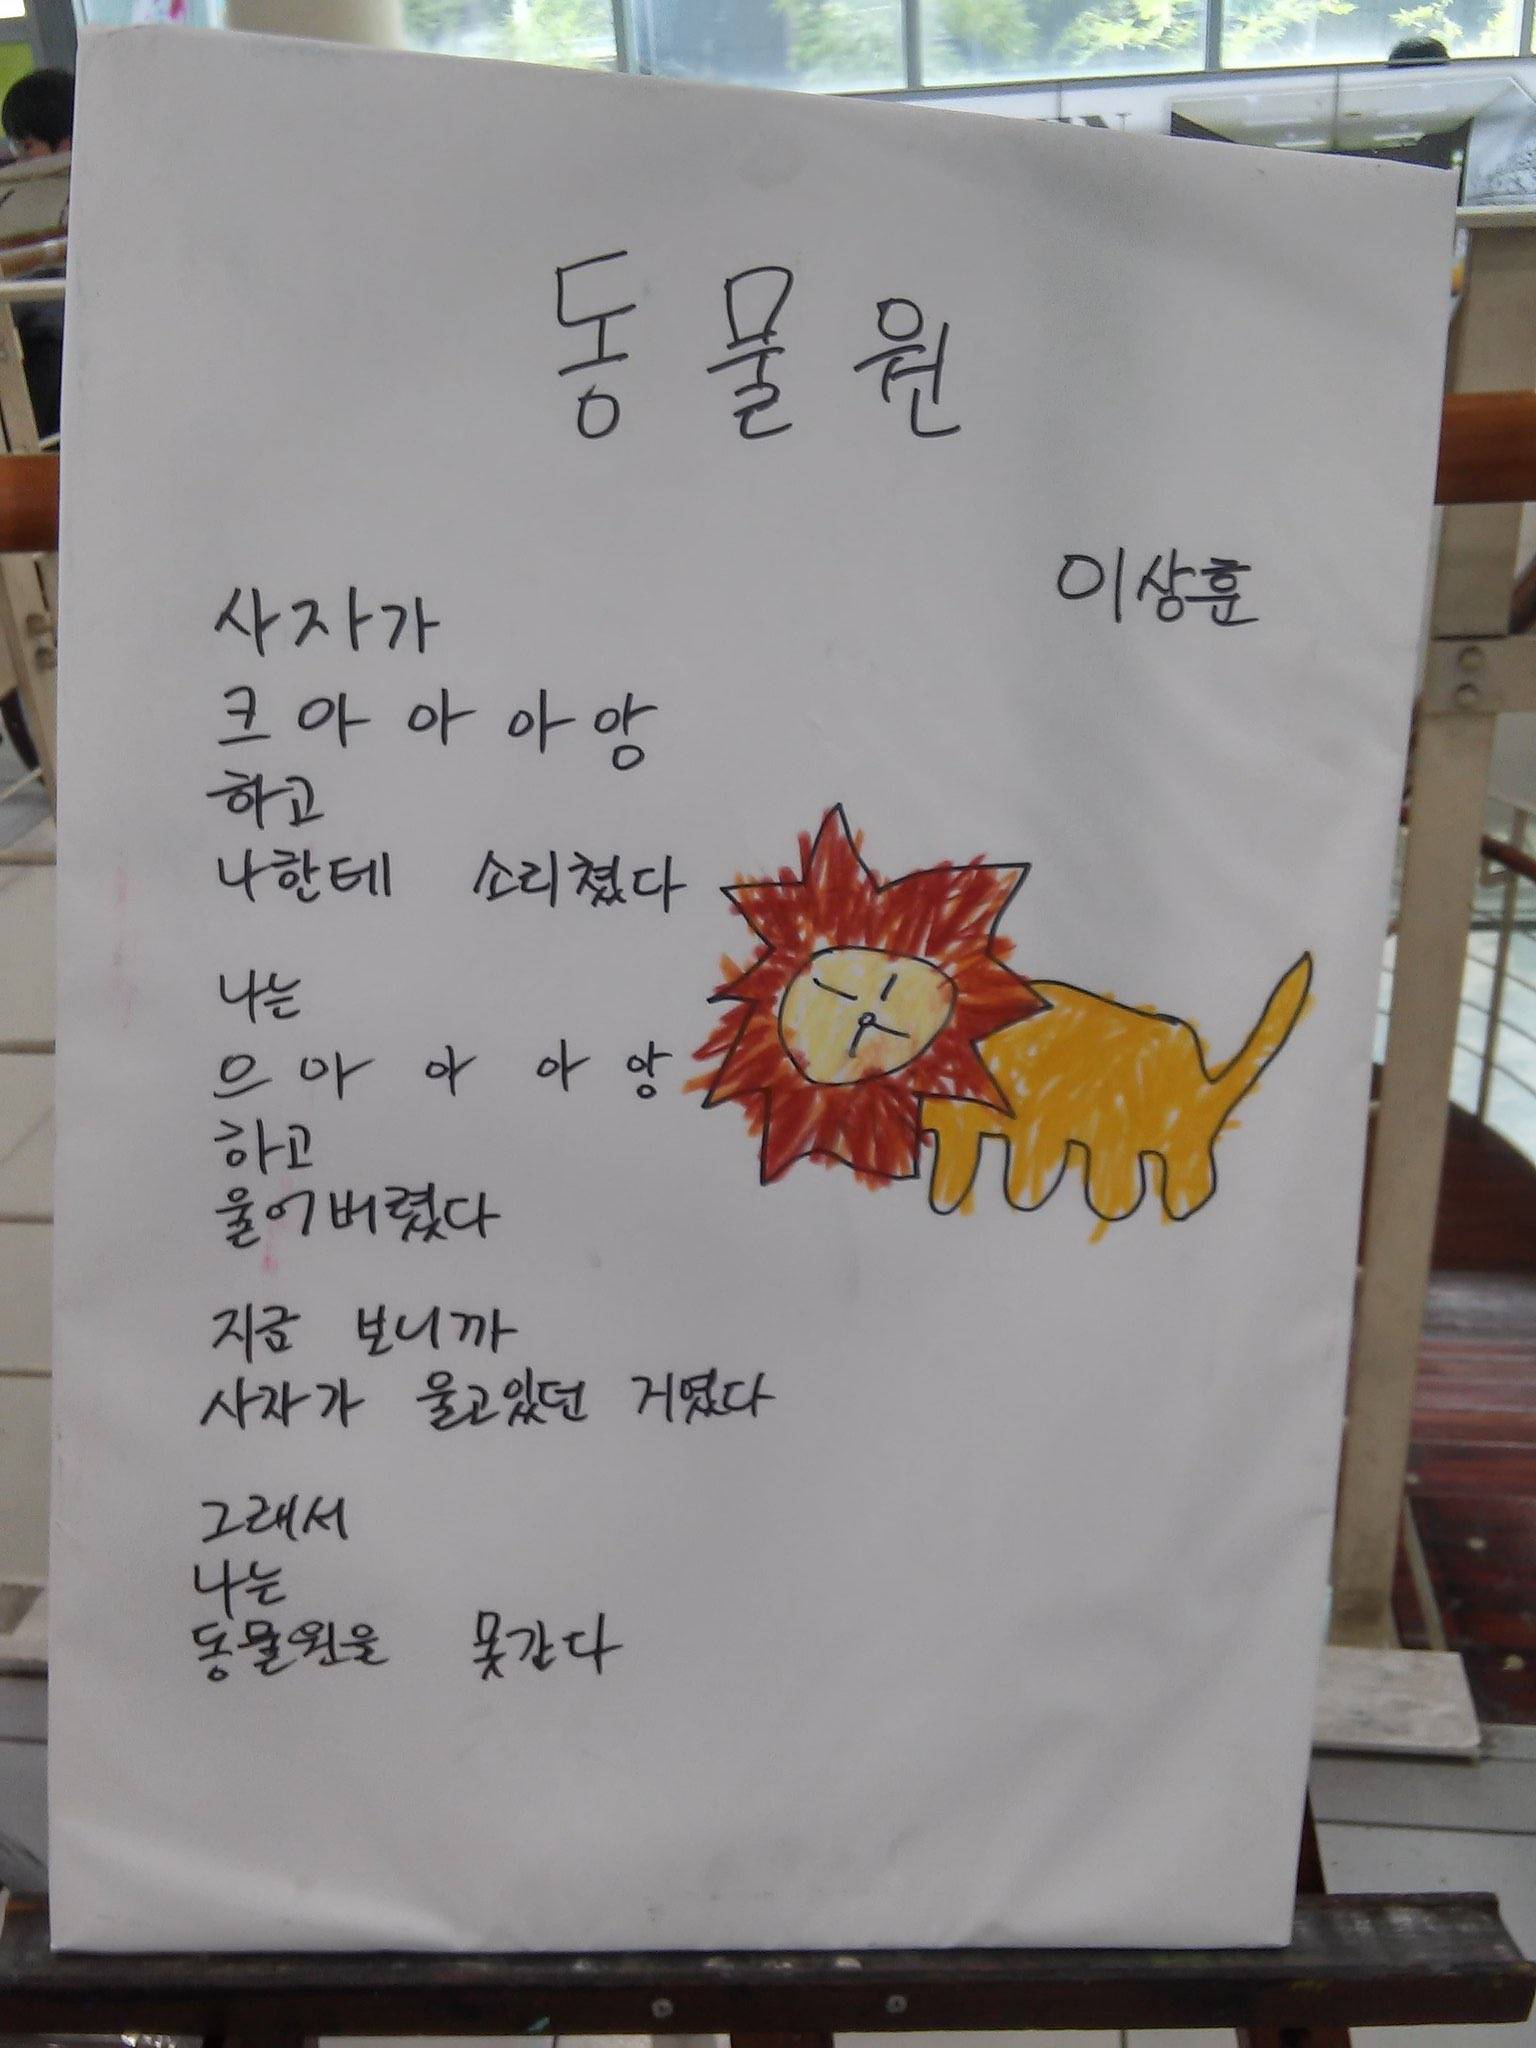 동물원
이상훈
사자가
크아아아앙
하고
나한테 소리쳤다
나는
으아아아앙
하고
울어버렸다
지금 보니까
사자가 울고있던 거였다
그래서
나는
동물원을 못간다